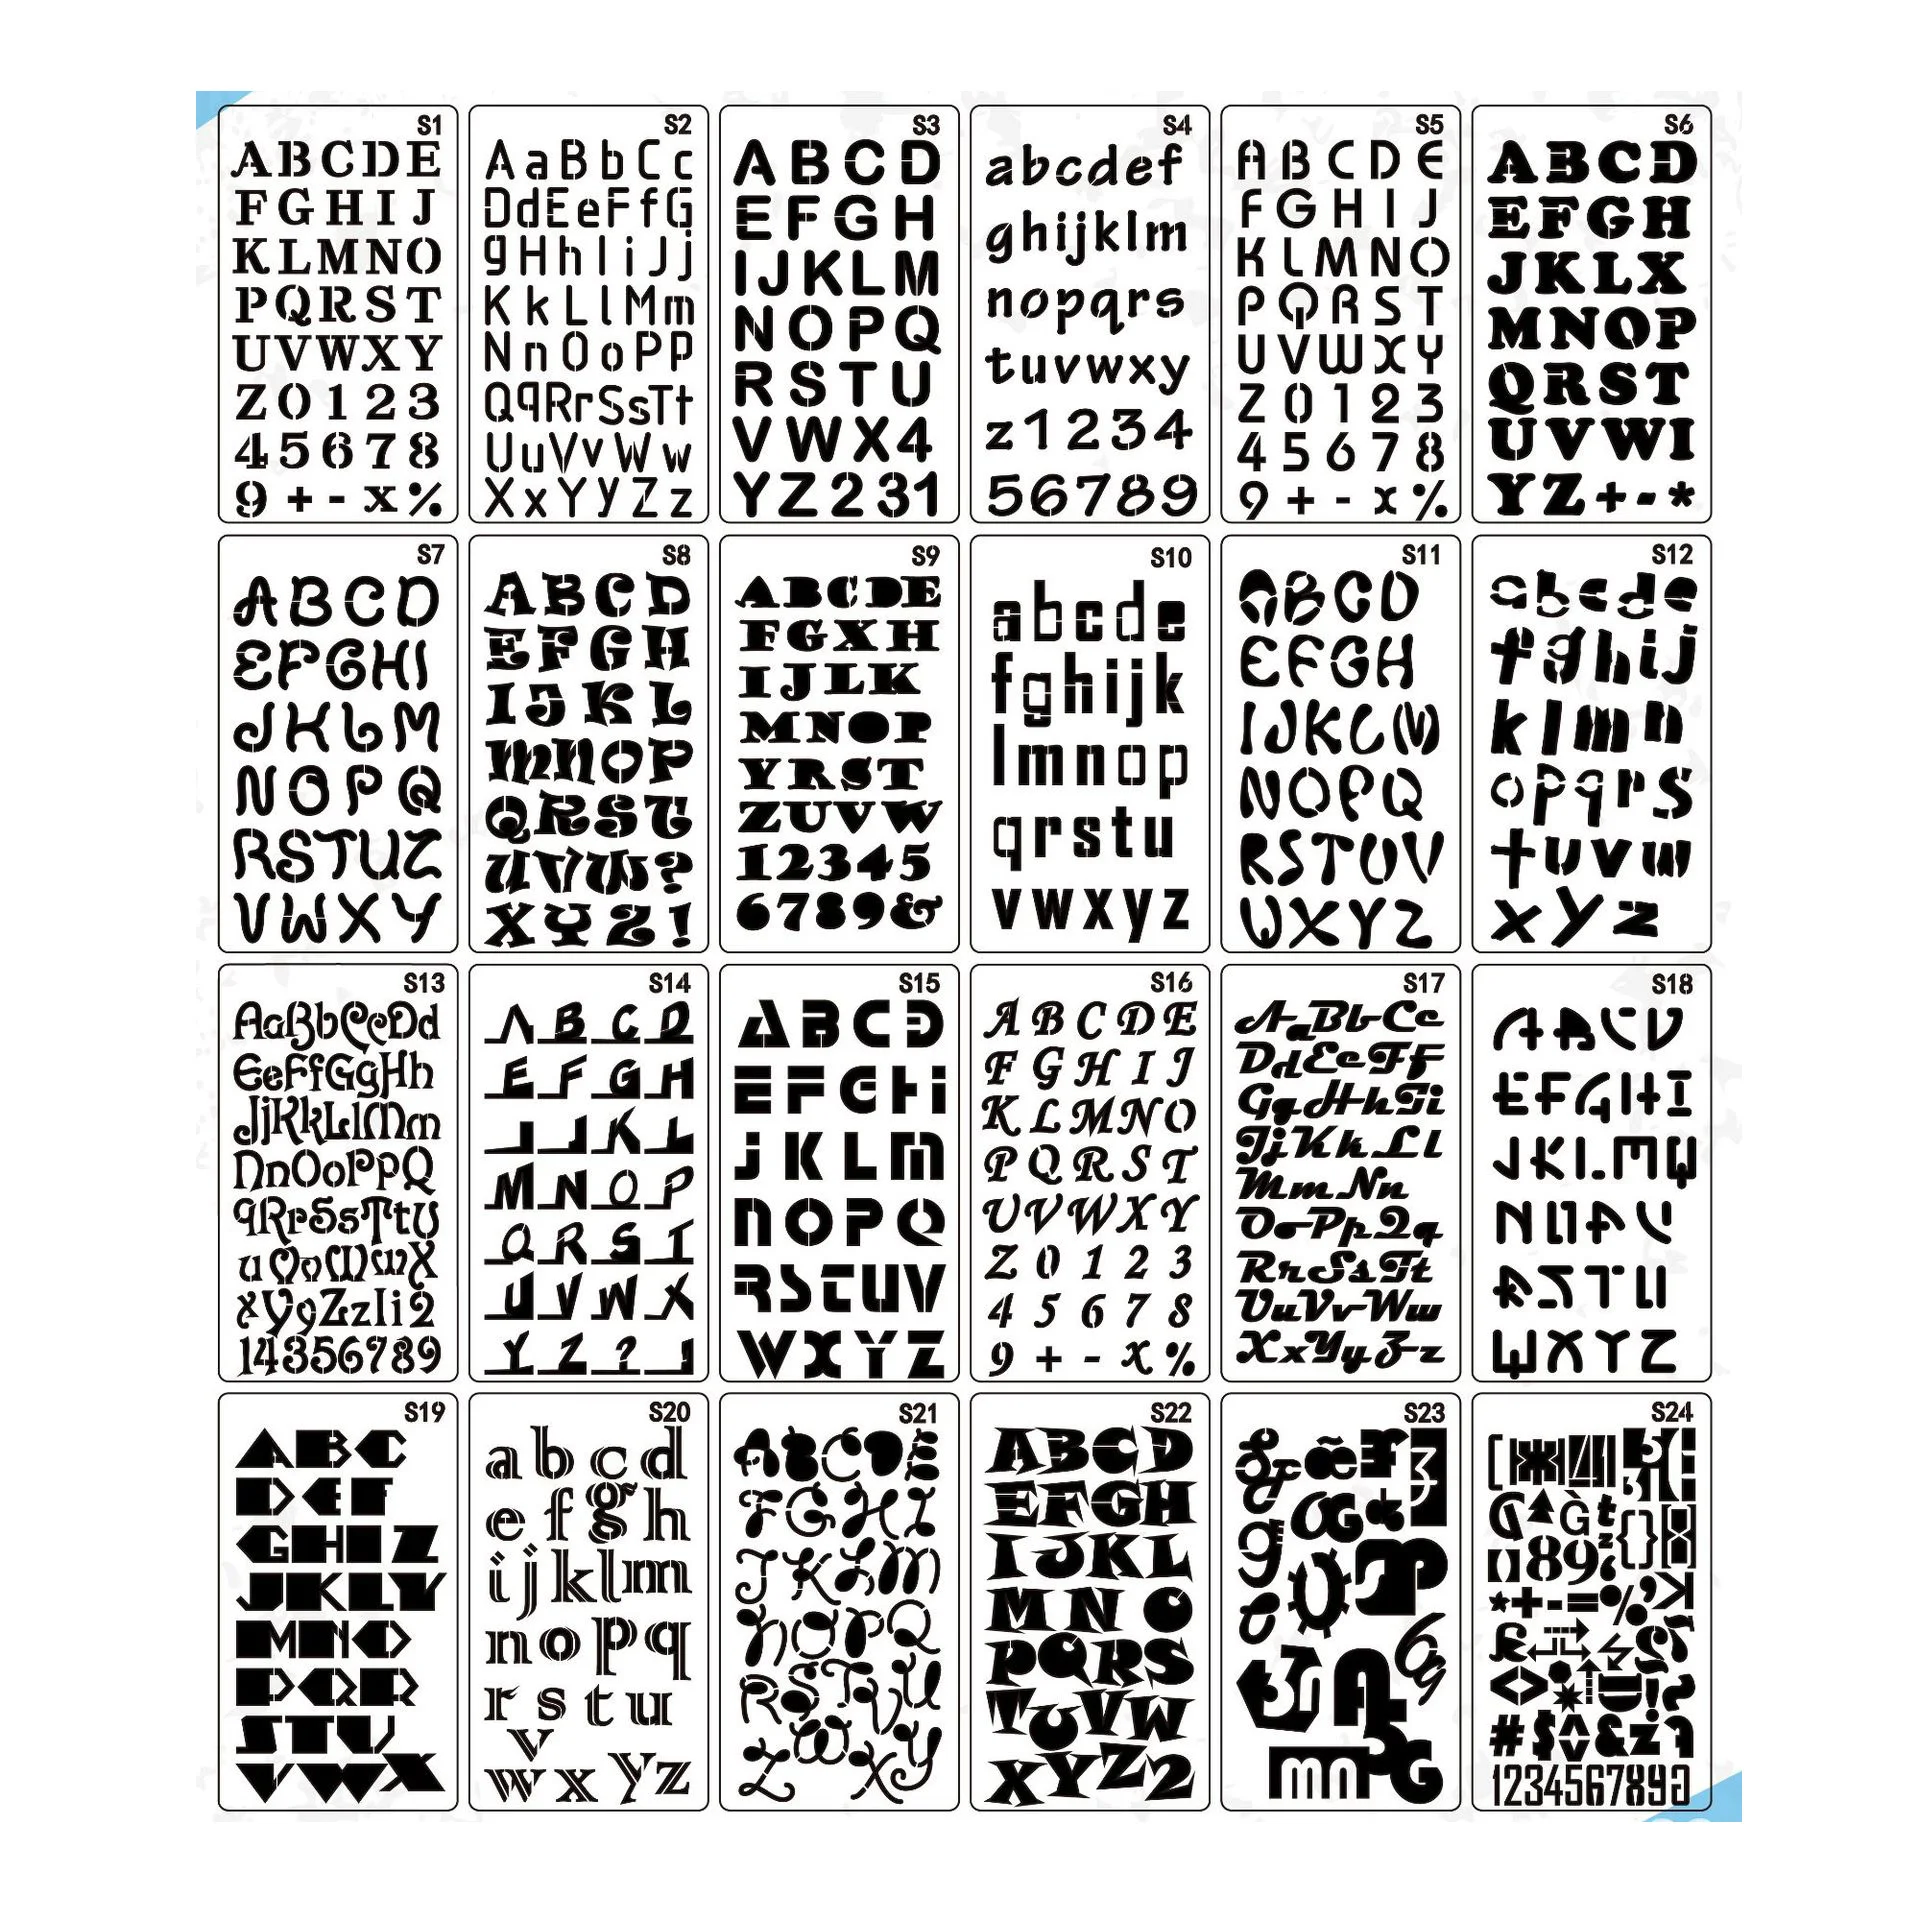 S1
A B C D E
F G H I J
K L M N O
P Q R S T
U V W X Y
Z 0 1 2 3
4 5 6 7 8
9 + - x %
S2
A a B b C c
D d E e F f G
g H h I i J j
K k L l M m
N n O o P p
Q q R r S s T t
U u V v W w
X x Y y Z z
S3
A B C D
E F G H
I J K L M
N O P Q
R S T U
V W X 4
Y Z 2 3 1
S4
a b c d e f
g h i j k l m
n o p q r s
t u v w x y
z 1 2 3 4
5 6 7 8 9
S5
A B C D E
F G H I J
K L M N O
P Q R S T
U V W X Y
Z 0 1 2 3
4 5 6 7 8
9 + - x %
S6
A B C D
E F G H
J K L X
M N O P
Q R S T
U V W I
Y Z + - *
S7
A B C D
E F G H I
J K L M
N O P Q
R S T U Z
V W X Y
S8
A B C D
E F G H
I J K L
M N O P
Q R S T
U V W ?
X Y Z !
S9
A B C D E
F G X H
I J L K
M N O P
Y R S T
Z U V W
1 2 3 4 5
6 7 8 9 &
S10
a b c d e
f g h i j k
l m n o p
q r s t u
v w x y z
S11
A B C D
E F G H
I J K L M
N O P Q
R S T U V
W X Y Z
S12
a b c d e
f g h i j
k l m n
o p q r s
t u v w
x y z
S13
A a B b C c D d
E e F f G g H h
J j K k L l M m
N n O o P p Q
q R r S s T t U
u V v W w X
x Y y Z z I i 2
1 4 3 5 6 7 8 9
S14
A B C D
E F G H
I J K L
M N O P
Q R S T
U V W X
Y Z ? !
S15
A B C D
E F G H i
j K L M
N O P Q
R S T U V
W X Y Z
S16
A B C D E
F G H I J
K L M N O
P Q R S T
U V W X Y
Z 0 1 2 3
4 5 6 7 8
9 + - x %
S17
A a B b C c
D d E e F f
G g H h I i
J j K k L l
M m N n
O o P p Q q
R r S s T t
U u V v W w
X x Y y Z z
S18
A B C D
E F G H I
J K L M Q
N O P
R S T U
W X Y Z
S19
A B C
D E F
G H I Z
J K L Y
M N O
P Q R
S T U
V W X
S20
a b c d
e f g h
i j k l m
n o p q
r s t u
v
w x y z
S21
A B C D E
F G H I
J K L M
N O P Q
R S T V U
Z W X Y
S22
A B C D
E F G H
I J K L
M N O
P Q R S
T U V W
X Y Z 2
S23
S24
1 2 3 4 5 6 7 8 9